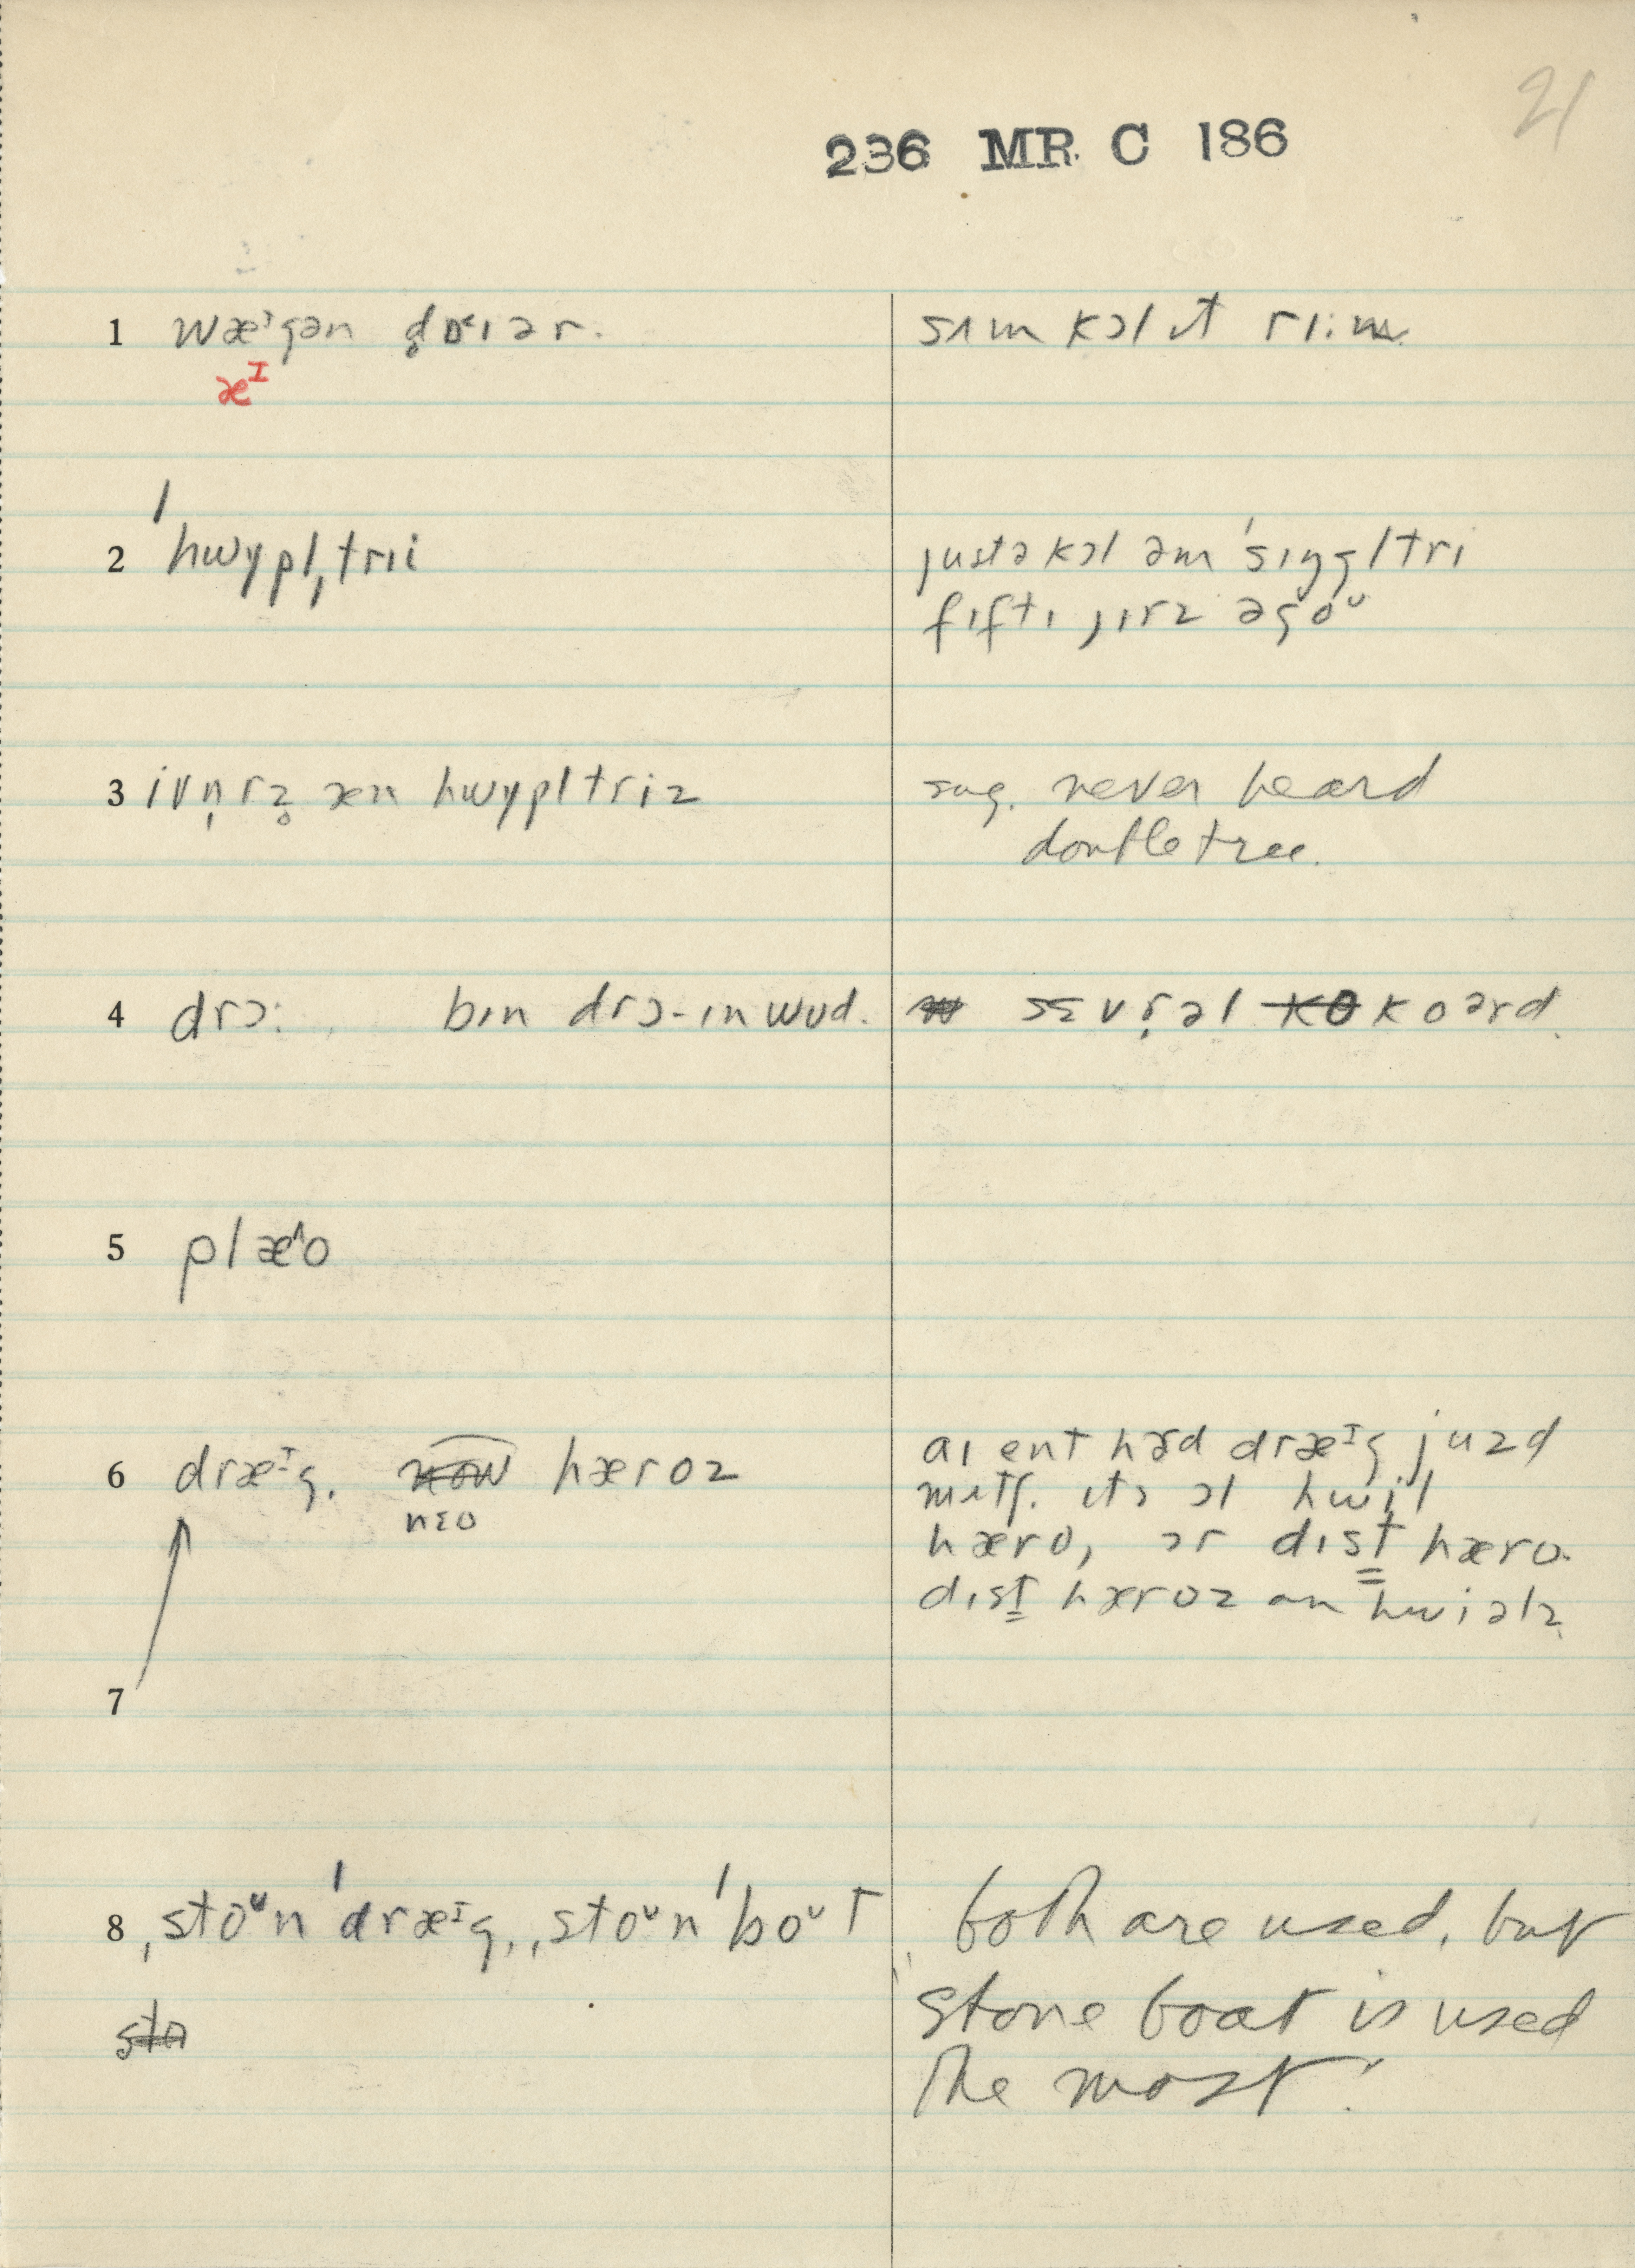 21
236 MR. C 186
1 wæᶦgən d̥ɒ‹ɪər. sʌm kɔl ɪt rɪ:m.
æᴵ
2 ˈhwɪpl̩ˌtrii justə kɔl əm ˈsɪŋgl̩tri
fɪfti jɪrz əgoᵘ
3 ivn̩rz̥ æn hwɪpl̩triz sug. never heard
doubletree.
4 drɔ: bɪn drɔ-ɪn wud. sɛvr̩əl koərd.
5 plæ^o
6 dræᴵg. hæroz aɪ ent hɜd dræᴵg juzd
nɛo mʌtʃ. ɪts ɔl hwil
hæro, ɔr dɪst hæro.
dɪst hæroz ən hwiəlz
7
8 ˌstoᵘnˈdræᴵg, ˌstoᵘnˈboᵘt both are used, but
stone boat is used
the most.